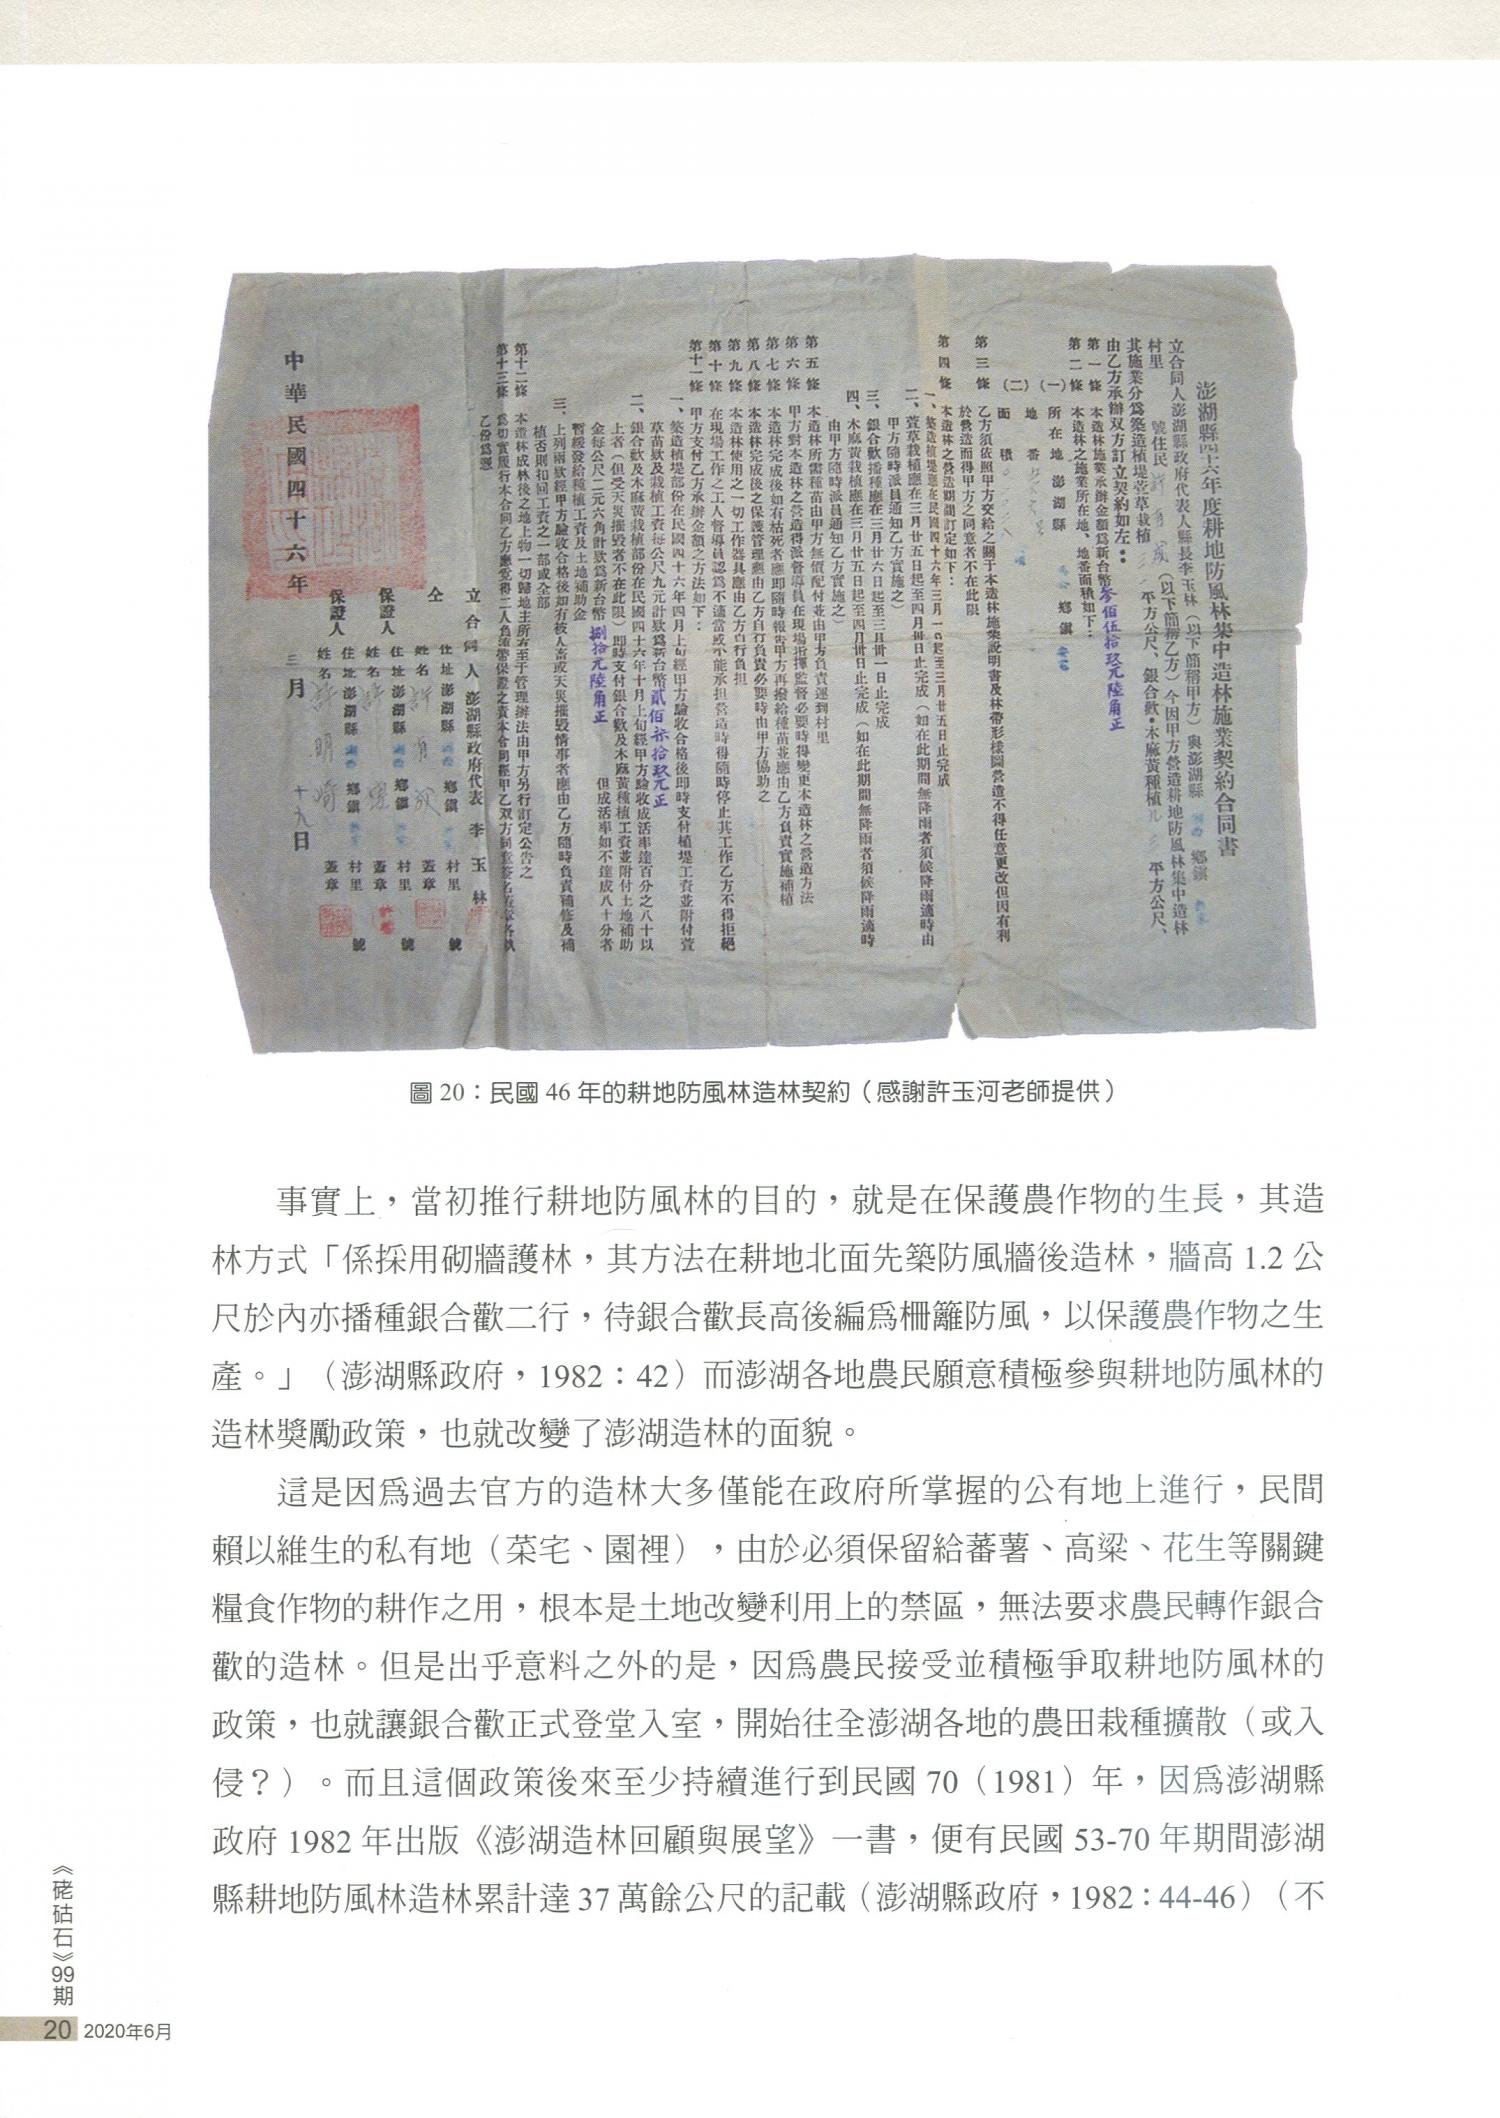 澎湖縣四十六年度耕地防風林集中造林施業契約合同書
立合同人澎湖縣政府代表人縣長李玉林(以下簡稱甲方)與澎湖縣 鄉鎮
村里 號住民許有 (以下簡稱乙方)今因甲方營造耕地防風林集中造林
其施業分爲築造植堤萱草栽植 平方公尺、銀合歡・木麻黃種植 平方公尺、
由乙方承辦双方訂立契約如左:
第一條 本造林施業承辦金額爲新台幣參佰伍拾玖元陸角正
第二條 本造林之施業所在地、地番面積如下:
(一)所在地 澎湖縣 鄉鎮
地番
(二)面積
第三條 乙方須依照甲方交給之關于本造林施業說明書及林帶形樣圖營造不得任意更改但因有利
於營造而得甲方之同意者不在此限
第四條 本造林之營造期間訂定如下:
一、築造植堤應在民國四十六年三月一日起至三月廿五日止完成
二、萱草栽植應在三月廿五日起至四月卅日止完成(如在此期間無降雨者須候降雨適時由
甲方隨時派員通知乙方實施之)
三、銀合歡播種應在三月廿六日起至三月卅一日止完成
四、木麻黃栽植應在三月廿五日起至四月卅日止完成(如在此期間無降雨者須候降雨適時
由甲方隨時派員通知乙方實施之)
第五條 本造林所需種苗由甲方無價配付並由甲方負責運到村里
第六條 甲方對本造林之營造得派督導員在現場指揮監督必要時得變更本造林之營造方法
第七條 本造林完成後如有枯死者應即隨時報告甲方再撥給種苗並應由乙方負責實施補植
第八條 本造林完成後之保護管理應由乙方自行負責必要時由甲方協助之
第九條 本造林使用之一切工作器具應由乙方自行負担
第十條 在現場工作之工人督導員認爲不適當或不能承担營造時得隨時停止其工作乙方不得拒絕
第十一條 甲方支付乙方承辦金額之方法如下:
一、築造植堤部份在民國四十六年四月上旬經甲方驗收合格後即時支付植堤工資並附付萱
草苗欵及栽植工資每公尺九元計欵爲新台幣貳佰柒拾玖元正
二、銀合歡及木麻黃栽植部份在民國四十六年十月上旬經甲方驗收成活率達百分之八十以
上者(但受天災摧毀者不在此限)即時支付銀合歡及木麻黃種植工資並附付土地補助
金每公尺二元六角計欵爲新台幣捌拾元陸角正 但成活率如不達成八十分者
暫緩發給種植工資及土地補助金
三、上列兩欵經甲方驗收合格後如有被人畜或天災摧毀情事者應由乙方隨時負責補修及補
植否則扣回工資之一部或全部
第十二條 本造林成林後之地上物一切歸地主所有至于管理辦法由甲方另行訂定公告之
第十三條 爲切實履行本合同乙方應覓得二人負連帶保證之責本合同經甲乙双方同意簽名蓋章各執
乙份爲憑
立合同人 澎湖縣政府代表 李玉林
仝 住址澎湖縣 鄉鎮 村里 號
姓名許有 蓋章
保證人 住址澎湖縣 鄉鎮 村里 號
姓名許 蓋章
保證人 住址澎湖縣 鄉鎮 村里 號
姓名許明 蓋章
中華民國四十六年 三月 十九日
圖 20:民國 46 年的耕地防風林造林契約(感謝許玉河老師提供)
事實上,當初推行耕地防風林的目的,就是在保護農作物的生長,其造
林方式「係採用砌牆護林,其方法在耕地北面先築防風牆後造林,牆高 1.2 公
尺於內亦播種銀合歡二行,待銀合歡長高後編爲柵籬防風,以保護農作物之生
產。」(澎湖縣政府,1982:42)而澎湖各地農民願意積極參與耕地防風林的
造林獎勵政策,也就改變了澎湖造林的面貌。
這是因爲過去官方的造林大多僅能在政府所掌握的公有地上進行,民間
賴以維生的私有地(菜宅、園裡),由於必須保留給蕃薯、高粱、花生等關鍵
糧食作物的耕作之用,根本是土地改變利用上的禁區,無法要求農民轉作銀合
歡的造林。但是出乎意料之外的是,因爲農民接受並積極爭取耕地防風林的
政策,也就讓銀合歡正式登堂入室,開始往全澎湖各地的農田栽種擴散(或入
侵?)。而且這個政策後來至少持續進行到民國 70(1981)年,因爲澎湖縣
政府 1982 年出版《澎湖造林回顧與展望》一書,便有民國 53-70 年期間澎湖
縣耕地防風林造林累計達 37 萬餘公尺的記載(澎湖縣政府,1982:44-46)(不
《硓𥑮石》99期
20 2020年6月